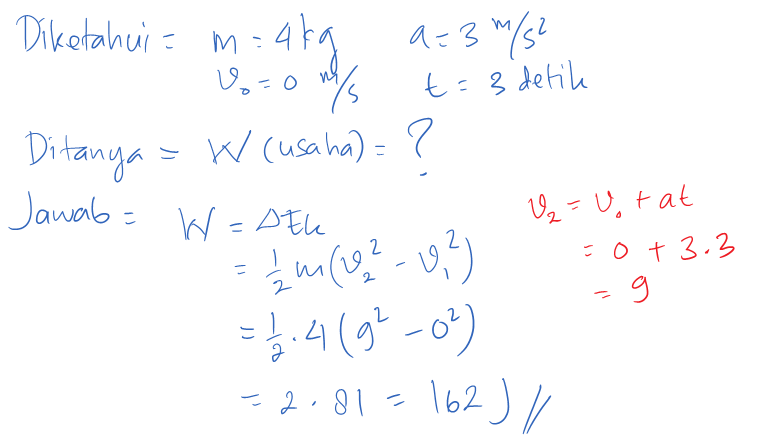 Diketahui = m = 4 kg a = 3 m/s²
v₀ = 0 m/s t = 3 detik
Ditanya = W (usaha) = ?
Jawab = W = ΔEk
= 1/2 m (v₂² - v₁²)
= 1/2 . 4 (9² - 0²)
= 2 . 81 = 162 J //
v₂ = v₀ + at
= 0 + 3.3
= 9